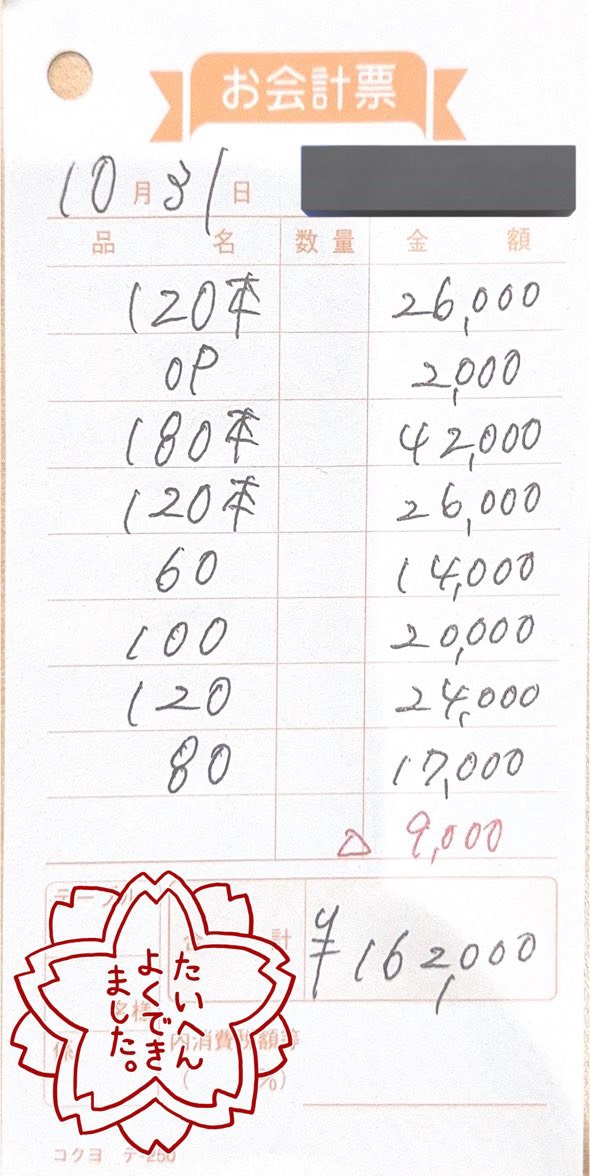 お会計票
10月31日
品名 数量 金額
120本 26,000
OP 2,000
180本 42,000
120本 26,000
60 14,000
100 20,000
120 24,000
80 17,000
△ 9,000
テーブル
合計 ¥162,000
名様
係
内消費税額等
( %)
たいへん
よくでき
ました。
コクヨ テ-250